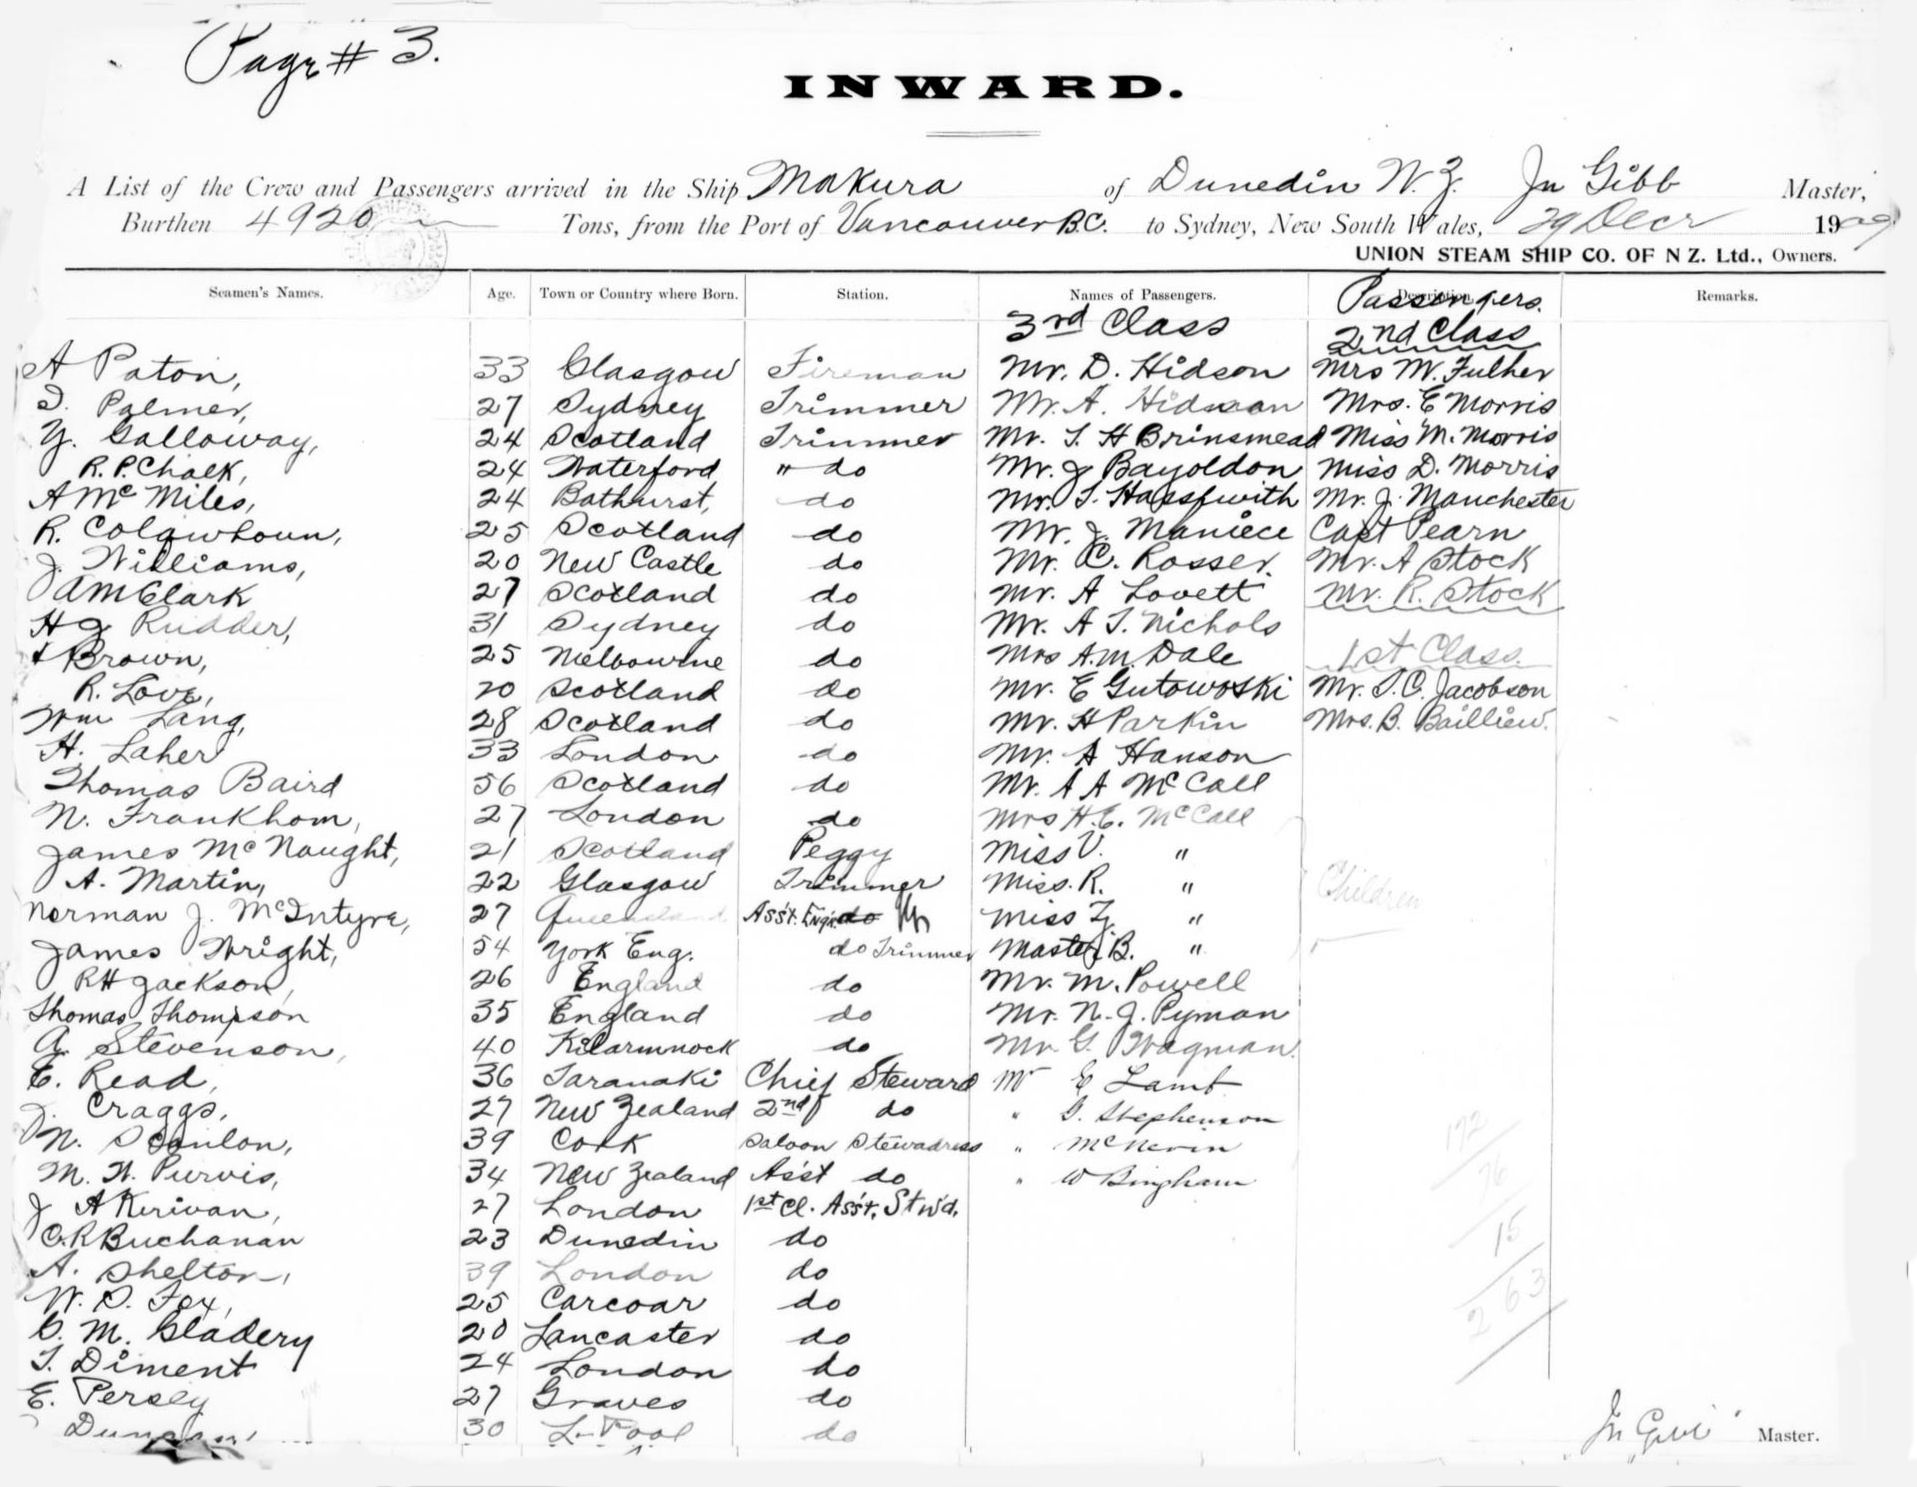 Page # 3.
INWARD.
A List of the Crew and Passengers arrived in the Ship Makura of Dunedin N.Z. Jn Gibb Master,
Burthen 4920 Tons, from the Port of Vancouver B.C. to Sydney, New South Wales, 29 Decr 1909
UNION STEAM SHIP CO. OF N Z. Ltd., Owners.
Seamen's Names. Age. Town or Country where Born. Station. Names of Passengers. Description. Remarks.
Passengers.
3rd Class 2nd Class
A Paton, 33 Glasgow Fireman Mr. D. Hidson Mrs W. Fulher
Palmer, 27 Sydney Trimmer Mr. A. Mrs. E Morris
Y. Galloway, 24 Scotland Trimmer Mr. T. H Brinsmead Miss M. Morris
R. P. Chalk, 24 Waterford " do Mr. J Bayoldon Miss D. Morris
A Mc Miles, 24 Bathurst, do Mr. Mr. J. Manchester
R. Colqwhoun, 25 Scotland do Mr. J. Maniece Capt Pearn
J. Williams, 20 New Castle do Mr. C. Rosser. Mr. A Stock
AM Clark 27 Scotland do Mr. A Lovett Mr. R. Stock
H J Rudder, 31 Sydney do Mr. A T. Nichols
Brown, 25 Melbourne do Mrs A.M. Dale 1st Class.
R. Love, 20 Scotland do Mr. E Gutowoski Mr. S. C. Jacobson
Wm Lang, 28 Scotland do Mr. H Parkin Mrs. B. Baillieu.
H. Laher 33 London do Mr. A Hanson
Thomas Baird 56 Scotland do Mr. A A McCall
N. Frankhom, 27 London do Mrs H.E. McCall
James McNaught, 21 Scotland Peggy Miss V. "
A. Martin, 22 Glasgow Trimmer Miss. R. " Children
Norman J. McIntyre, 27 Queensland Ass't. Engr. do Miss Z. "
James Wright, 54 York Eng. do Trimmer Master B. "
R H Jackson, 26 England do Mr. M. Powell
Thomas Thompson 35 England do Mr. N. J. Pyman
A. Stevenson, 40 Kilarmnock do Mr G. Wagman.
E. Read, 36 Taranaki Chief Steward Mr E Lamb
J. Craggs, 27 New Zealand 2nd do " G. Stephenson
N. Scanlon, 39 Cork Saloon Stewadress " McNevin
M. W. Purvis, 34 New Zealand Ass't do " W Bingham
J A Kerivan, 27 London 1st Cl. Ass't. Stw'd.
C.R Buchanan 23 Dunedin do
A. Shelton, 39 London do
W. S. Fox, 25 Carcoar do
C. M. Gladery 20 Lancaster do
T. Diment 24 London do
E. Persey 27 Graves do
30 L. Pool do
172
76
15
263
Jn Gibb Master.